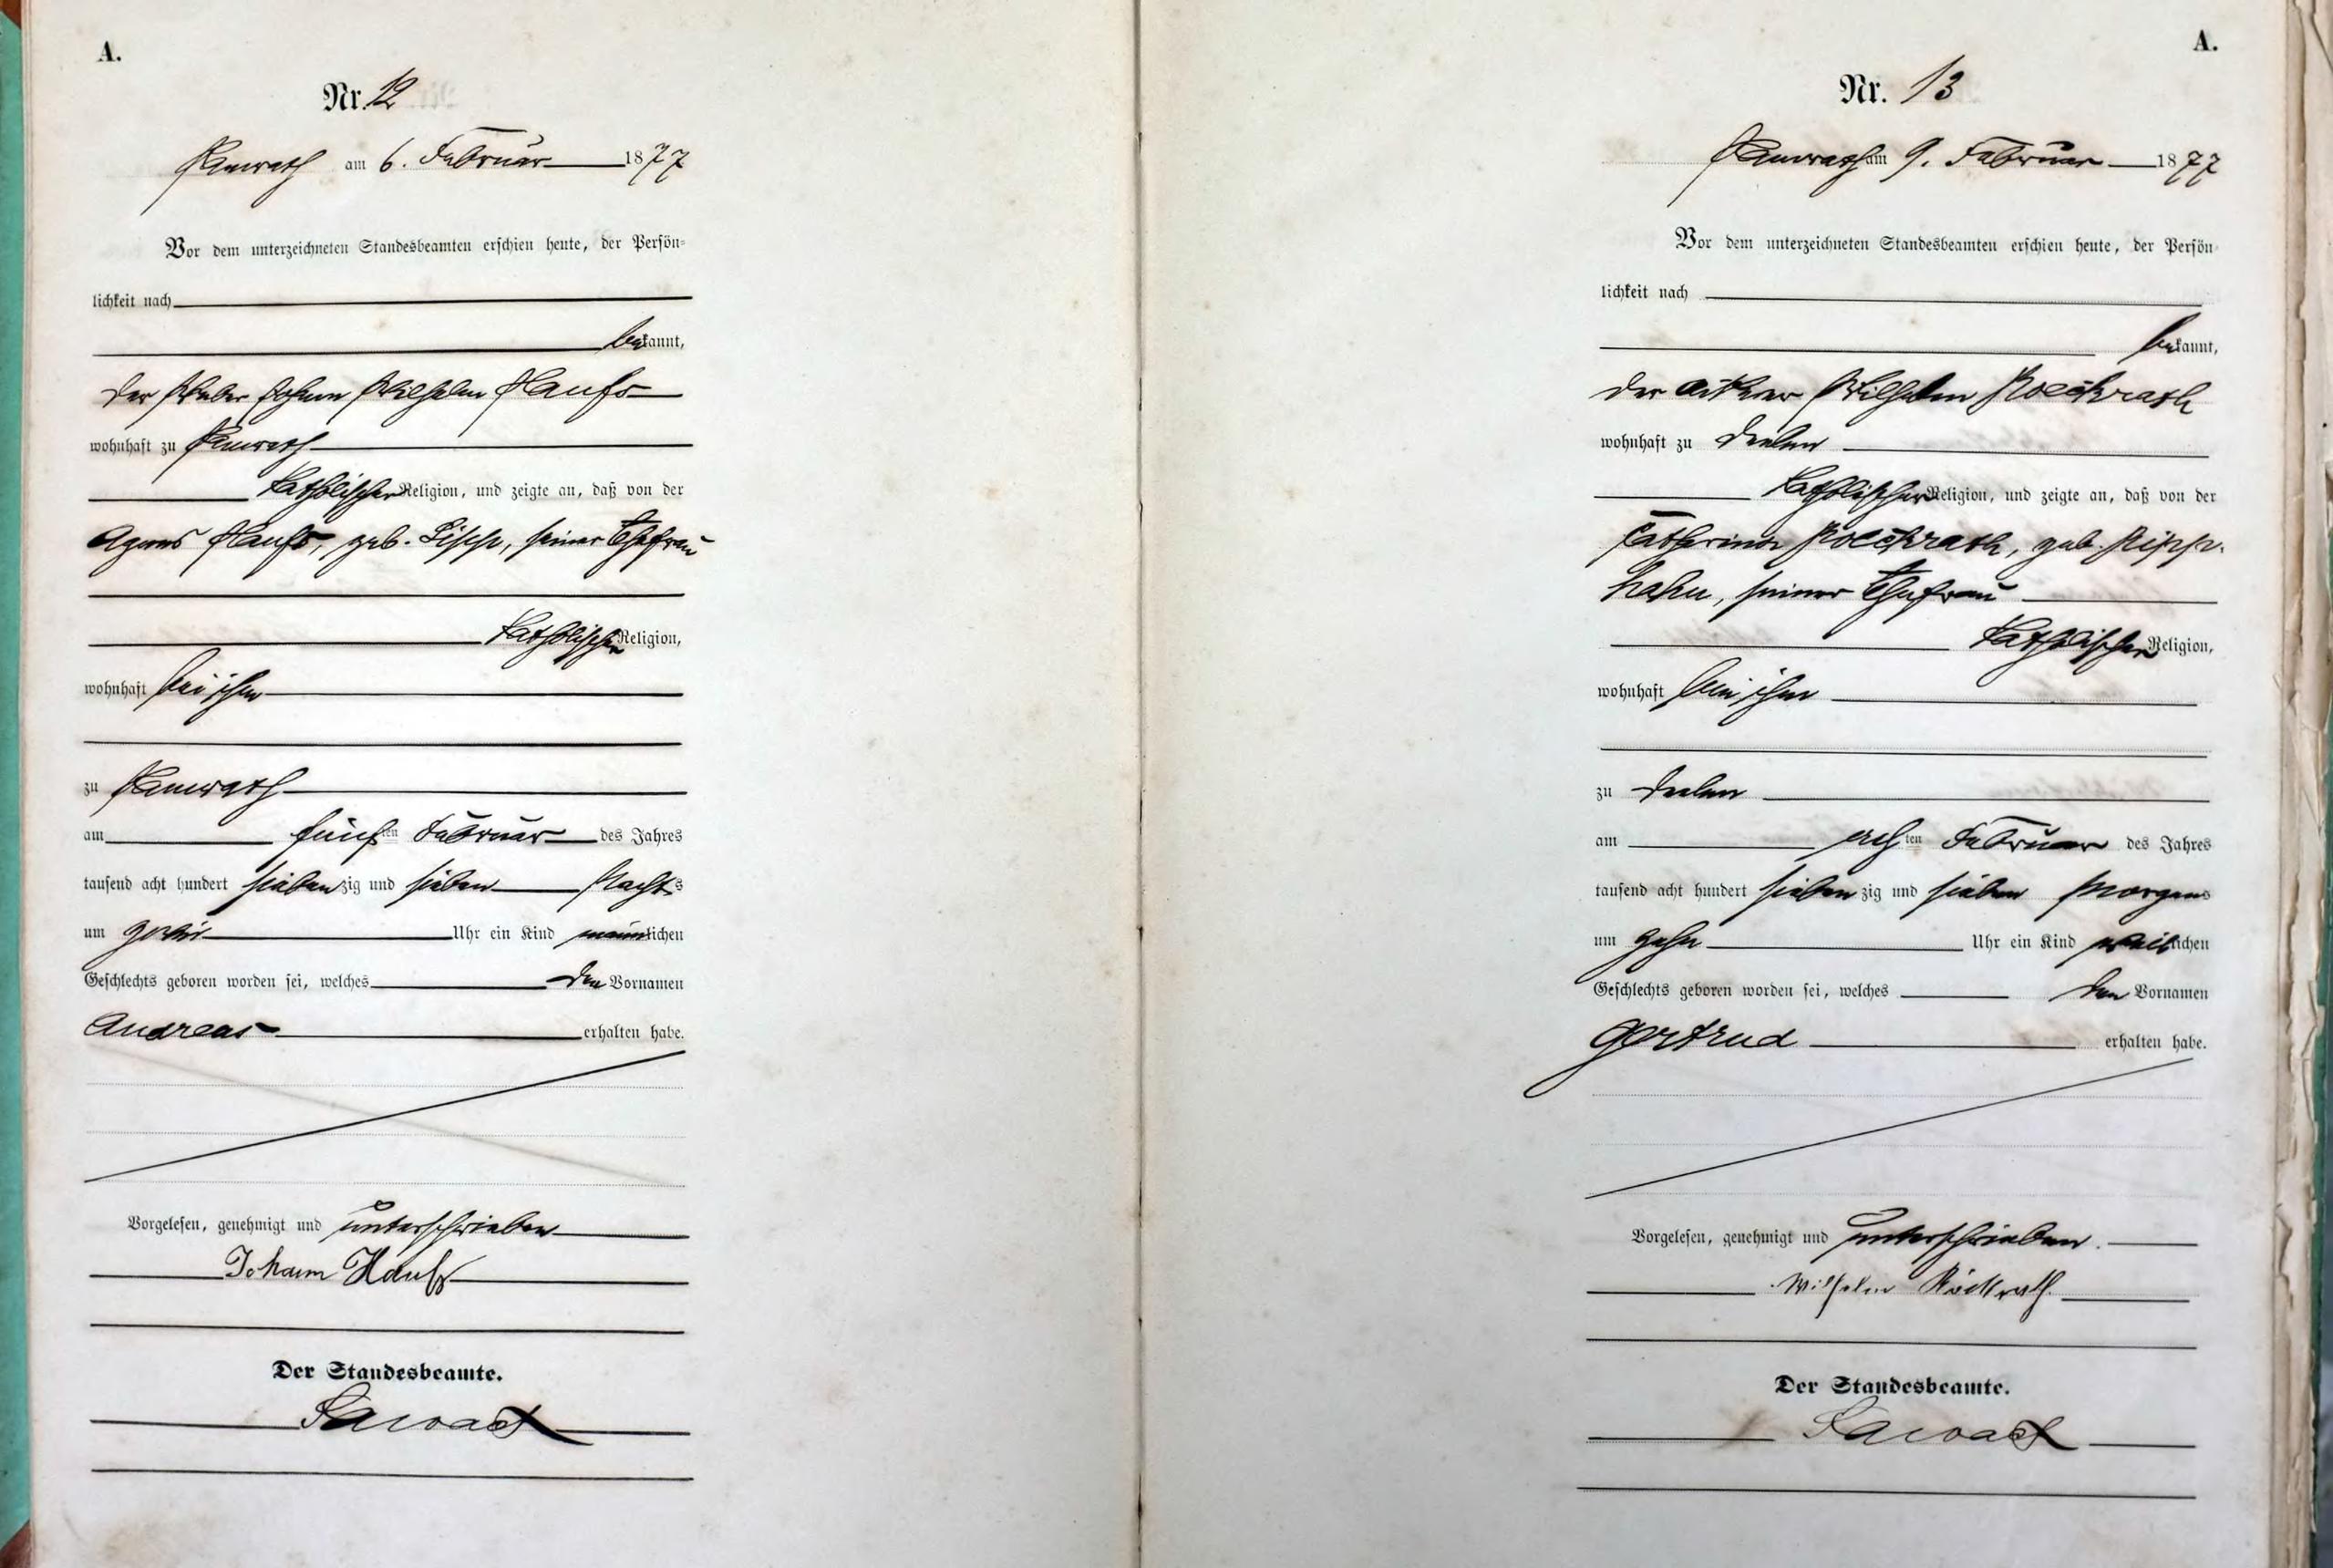 A.
Nr. 12
Hemmerath am 6. Februar 1877
Vor dem unterzeichneten Standesbeamten erschien heute, der Persön-
lichkeit nach
bekannt,
der Weber Johann Wilhelm Haufs
wohnhaft zu
katholischer Religion, und zeigte an, daß von der
Agnes Haufs, geb. seiner Ehefrau
katholischer Religion,
wohnhaft bei ihm
zu
am fünften Februar des Jahres
tausend acht hundert siebenzig und sieben Nachts
um zwei Uhr ein Kind männlichen
Geschlechts geboren worden sei, welches den Vornamen
Andreas erhalten habe.
Vorgelesen, genehmigt und unterschrieben
Johann Haufs
Der Standesbeamte.
A.
Nr. 13
am 9. Februar 1877
Vor dem unterzeichneten Standesbeamten erschien heute, der Persön-
lichkeit nach
bekannt,
der Ackerer Wilhelm Roeckrath
wohnhaft zu Deelen
katholischer Religion, und zeigte an, daß von der
Catharina Roeckrath, geb. Ripp-
hahn, seiner Ehefrau
katholischer Religion,
wohnhaft bei ihm
zu Deelen
am achten Februar des Jahres
tausend acht hundert siebenzig und sieben Morgens
um zehn Uhr ein Kind weiblichen
Geschlechts geboren worden sei, welches den Vornamen
Gertrud erhalten habe.
Vorgelesen, genehmigt und unterschrieben.
Wilhelm Röckrath.
Der Standesbeamte.